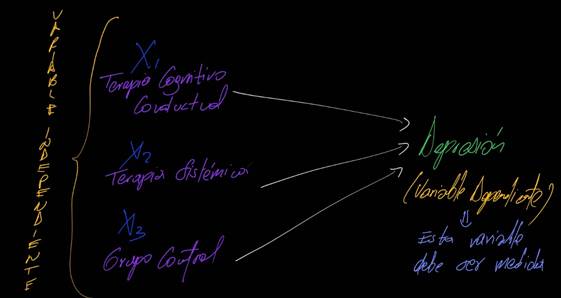 VARIABLE INDEPENDIENTE
X1
Terapia Cognitivo
Conductual
X2
Terapia Sistémica
X3
Grupo Control
Depresión
(Variable Dependiente)
Esta variable
debe ser medida